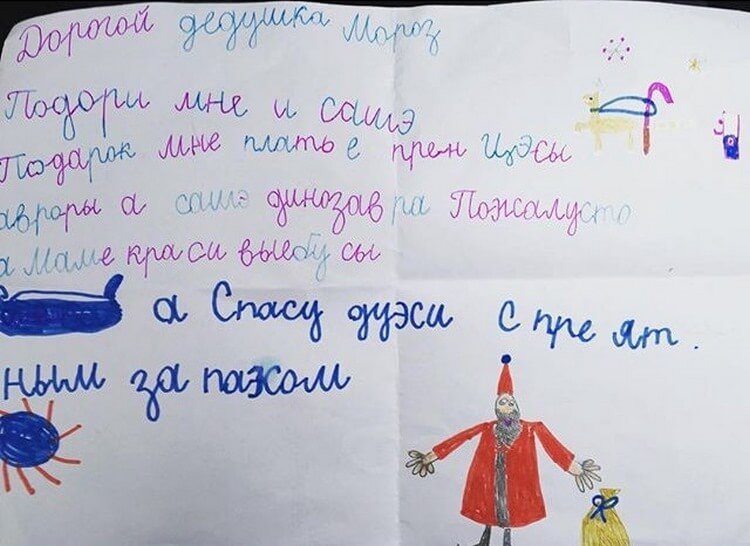 Дорогой дедушка Мороз
Подори мне и сашэ
Подарок мне плать е прен Цэсы
авроры а сашэ динозав ра Пожалусто
а Маме краси выебу сы
а Спасу дуэси с пре ят.
ным за пахом